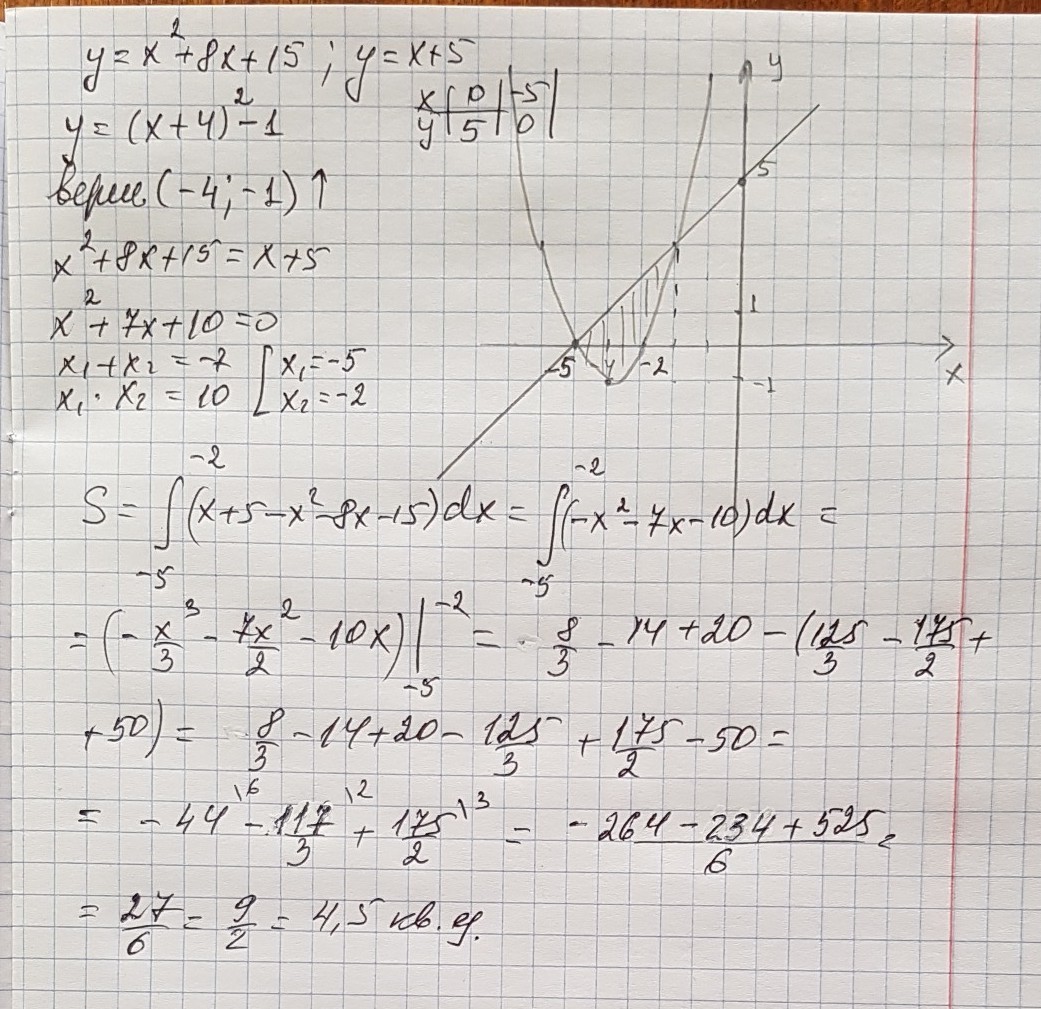 y = x² + 8x + 15 ; y = x + 5
y = (x + 4)² - 1
x | 0 | -5 |
y | 5 | 0 |
верш (-4; -1) ↑
x² + 8x + 15 = x + 5
x² + 7x + 10 = 0
x₁ + x₂ = -7 [ x₁ = -5
x₁ · x₂ = 10 [ x₂ = -2
y
5
1
-5 -2
-1
x
S = ∫₋₅⁻² (x + 5 - x² - 8x - 15) dx = ∫₋₅⁻² (-x² - 7x - 10) dx =
= (-x³/3 - 7x²/2 - 10x) |₋₅⁻² = 8/3 - 14 + 20 - (125/3 - 175/2 +
+ 50) = 8/3 - 14 + 20 - 125/3 + 175/2 - 50 =
= -44\6 - 117/3\2 + 175/2\3 = (-264 - 234 + 525)/6 =
= 27/6 = 9/2 = 4,5 кв. ед.